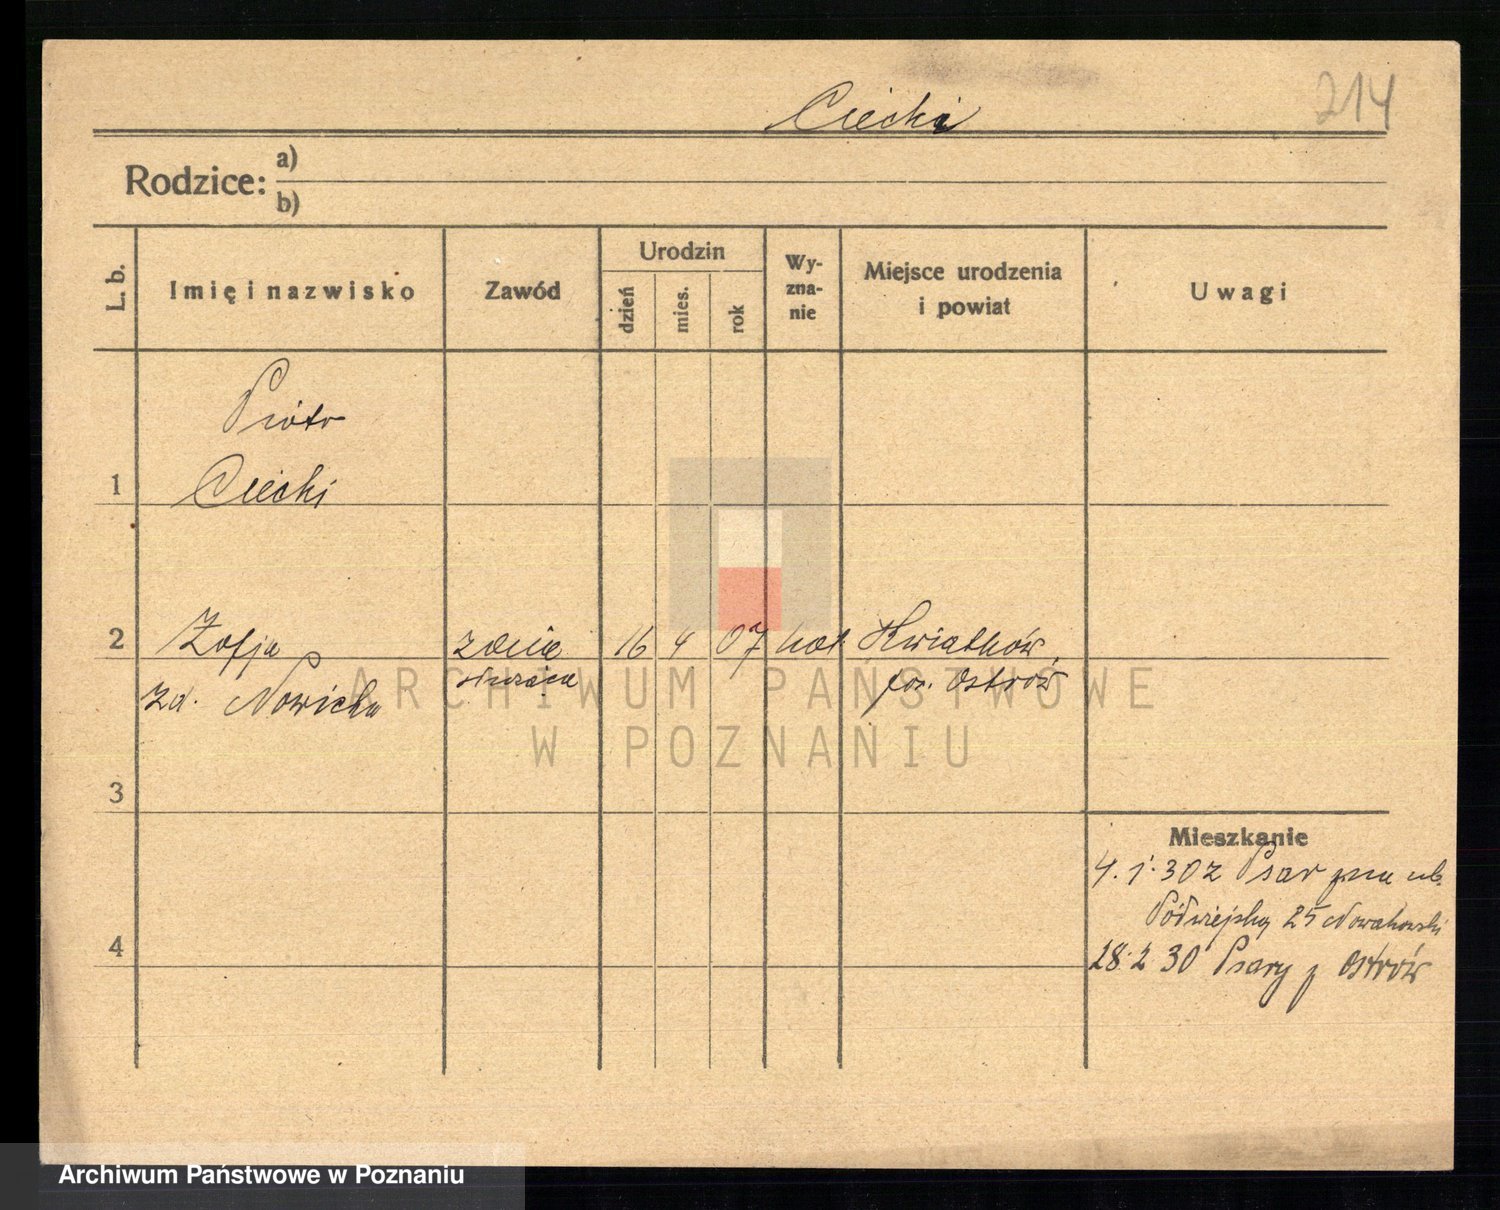 Ciecki
214
Rodzice: a)
b)
L. b.
Imię i nazwisko
Zawód
Urodzin
dzień
mies.
rok
Wy-
zna-
nie
Miejsce urodzenia
i powiat
Uwagi
Piotr
1 Ciecki
2 Zofja 16 4 07 kat. Kwiatków
zd. Nowicka służąca pow. Ostrów
3
Mieszkanie
4. 1. 30 z Psar
25 Nowakowski
4
28. 2 30 Psary p Ostrów
ARCHIWUM PAŃSTWOWE
W POZNANIU
Archiwum Państwowe w Poznaniu